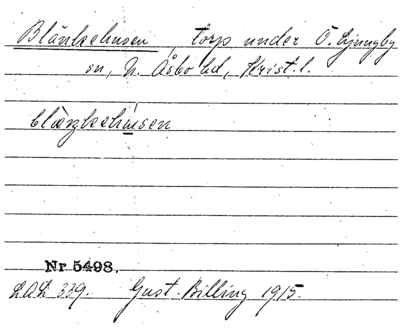 Blänkehusen, torp under Ö. Ljungby
sn, N. Åsbo hd, Krist. l.
blæŋkeshu̇sen
Nr 5498.
LAL 339. Gust. Billing 1915.